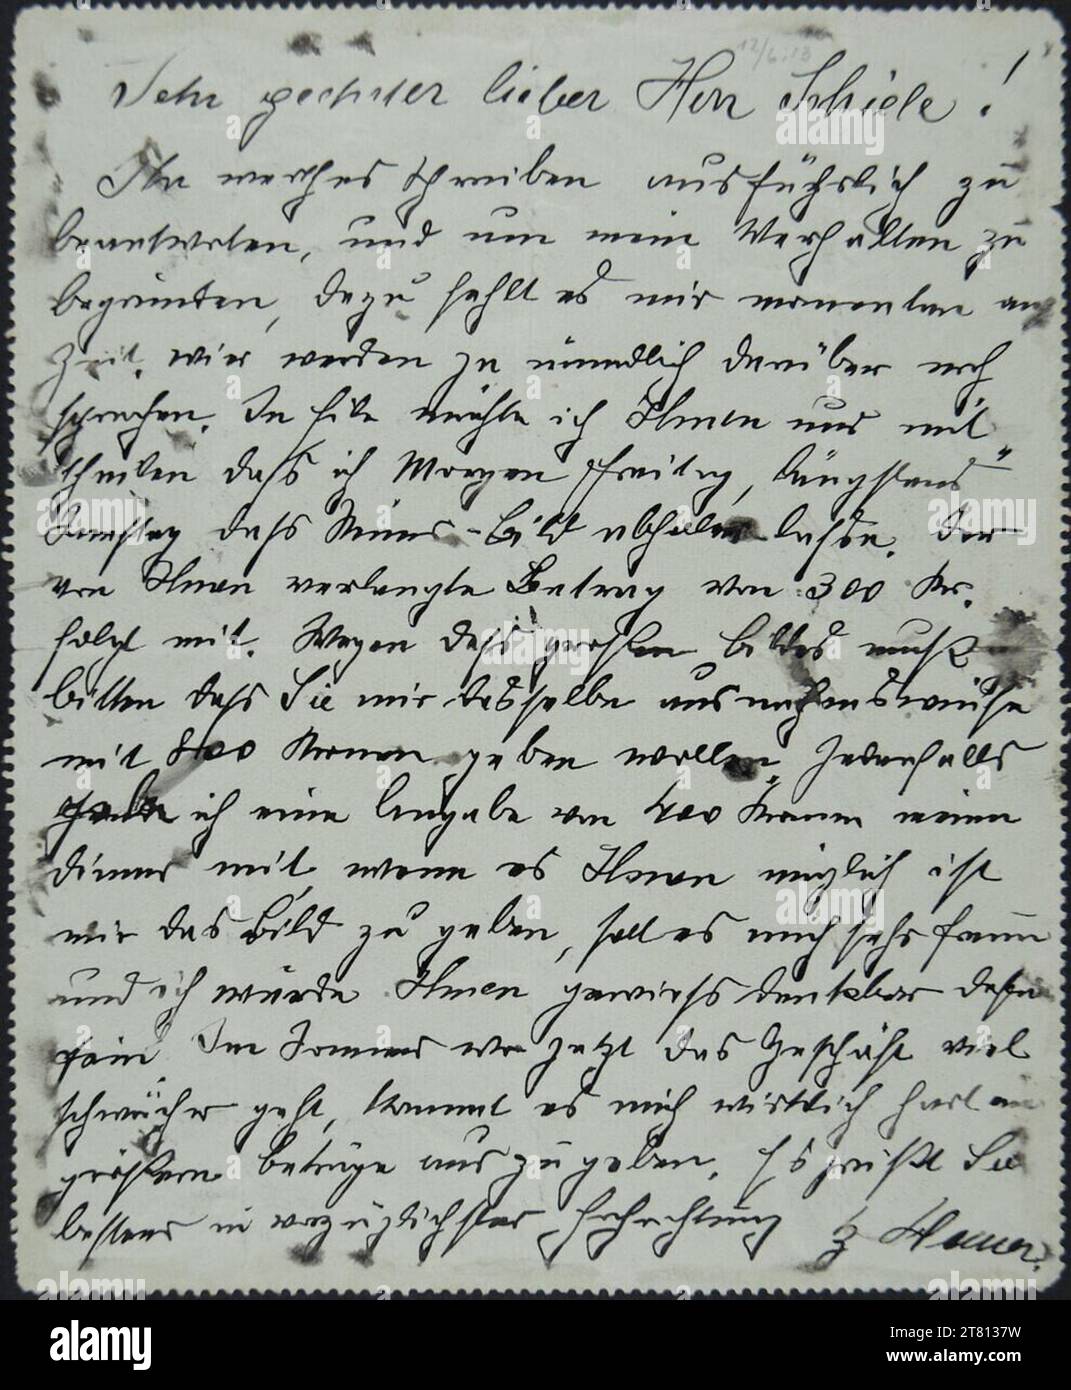 12/6.13
Sehr geehrter lieber Herr Schiele!
Ihr werthes Schreiben ausführlich zu
beantworten, und um mein Verhalten zu
begründen, dazu fehlt es mir momentan an
Zeit. wir werden ja mündlich darüber noch
sprechen. In Eile möchte ich Ihnen nur mit
theilen daß ich Morgen Freitag, „längstens"
Samstag daß Bild abholen lasse. Der
von Ihnen verlangte Betrag von 300 Kr.
folgt mit. Wegen daß großen Bildes muß
bitten daß Sie mir dasselbe ausnahmsweise
mit 800 Kronen geben wollen. Jedenfalls
ich eine Angabe von 400 Kronen meinem
Diener mit, wenn es Ihnen möglich ist
mir das Bild zu geben, soll es mich sehr freuen
und ich würde Ihnen gewiß dankbar dafür
sein. Im Sommer wo jetzt das Geschäft viel
schwächer geht, kommt es mich wirklich hart an
größere Beträge auszugeben. Es grüßt Sie
bestens in vorzüglichster Hochachtung
alamy
Image ID: 2T8137W
www.alamy.com